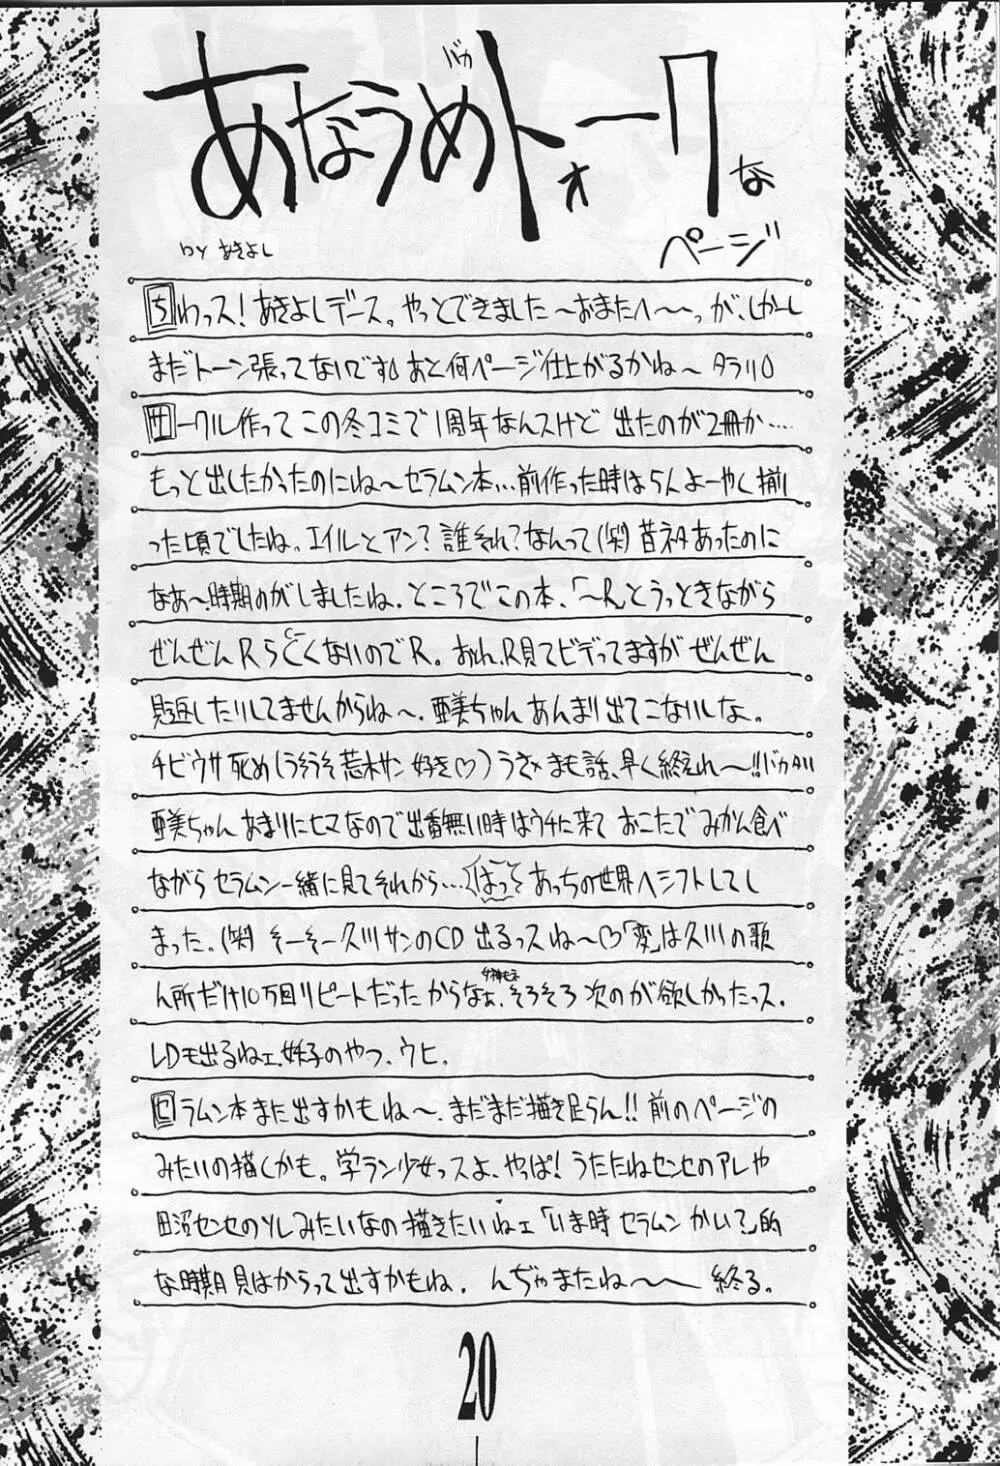 あなうめバカトォークな
ページ
by あきよし
ちわっス！あきよしデース。やっとできました〜おまたへ〜〜っが、しかーし
まだトーン張ってないです あと何ページ仕上がるかね〜 タラリ
サークル作ってこの冬コミで1周年なんスけど 出たのが2冊か…
もっと出したかったのにね〜セラムン本…前作った時は5人よーやく揃
った頃でしたね。エイルとアン？誰それ？なんって(笑)昔ネタあったのに
なあ〜、時期のがしましたね。ところでこの本、「〜R」とうっときながら
ぜんぜんRらしくないのでR。おれ、R見てビデってますがぜんぜん
見返したりしてませんからね〜。亜美ちゃんあんまり出てこないしな。
チビウサ死め(うそうそ荒木サン好き♡)うさ×まも話、早く終えれ〜!!バカタリ
亜美ちゃんあまりにヒマなので出番無い時はウチに来ておこたでみかん食べ
ながらセラムン一緒に見てそれから…はっ あっちの世界へシフトしてし
まった。(笑) そーそー久川サンのCD出るっスね〜♡「変」は久川の歌
ん所だけ10万回リピートだったからなぁ、女神もネ そろそろ次のが欲しかったっス。
LDも出るねェ、妖子のやつ、ウヒ。
セラムン本また出すかもね〜、まだまだ描き足らん!!前のページの
みたいの描くかも。学ラン少女っスよ、やっぱ！うたたねセンセのアレや
田沼センセのソレみたいなの描きたいねェ「いま時セラムンかい？」的
な時期見はからって出すかもね。んぢゃまたね〜〜 終る。
20